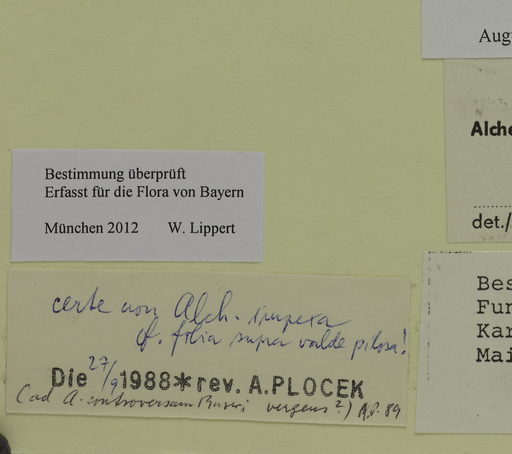 Augu
Alche
det./
Bestimmung überprüft
Erfasst für die Flora von Bayern
München 2012 W. Lippert
Bes
Fun
Kar
Mai
certe non Alch. impexa
cf. folia supra valde pilosa!
Die 27/9 1988*rev. A.PLOCEK
(ad A. controversam Buseri vergens?) A.P. 89